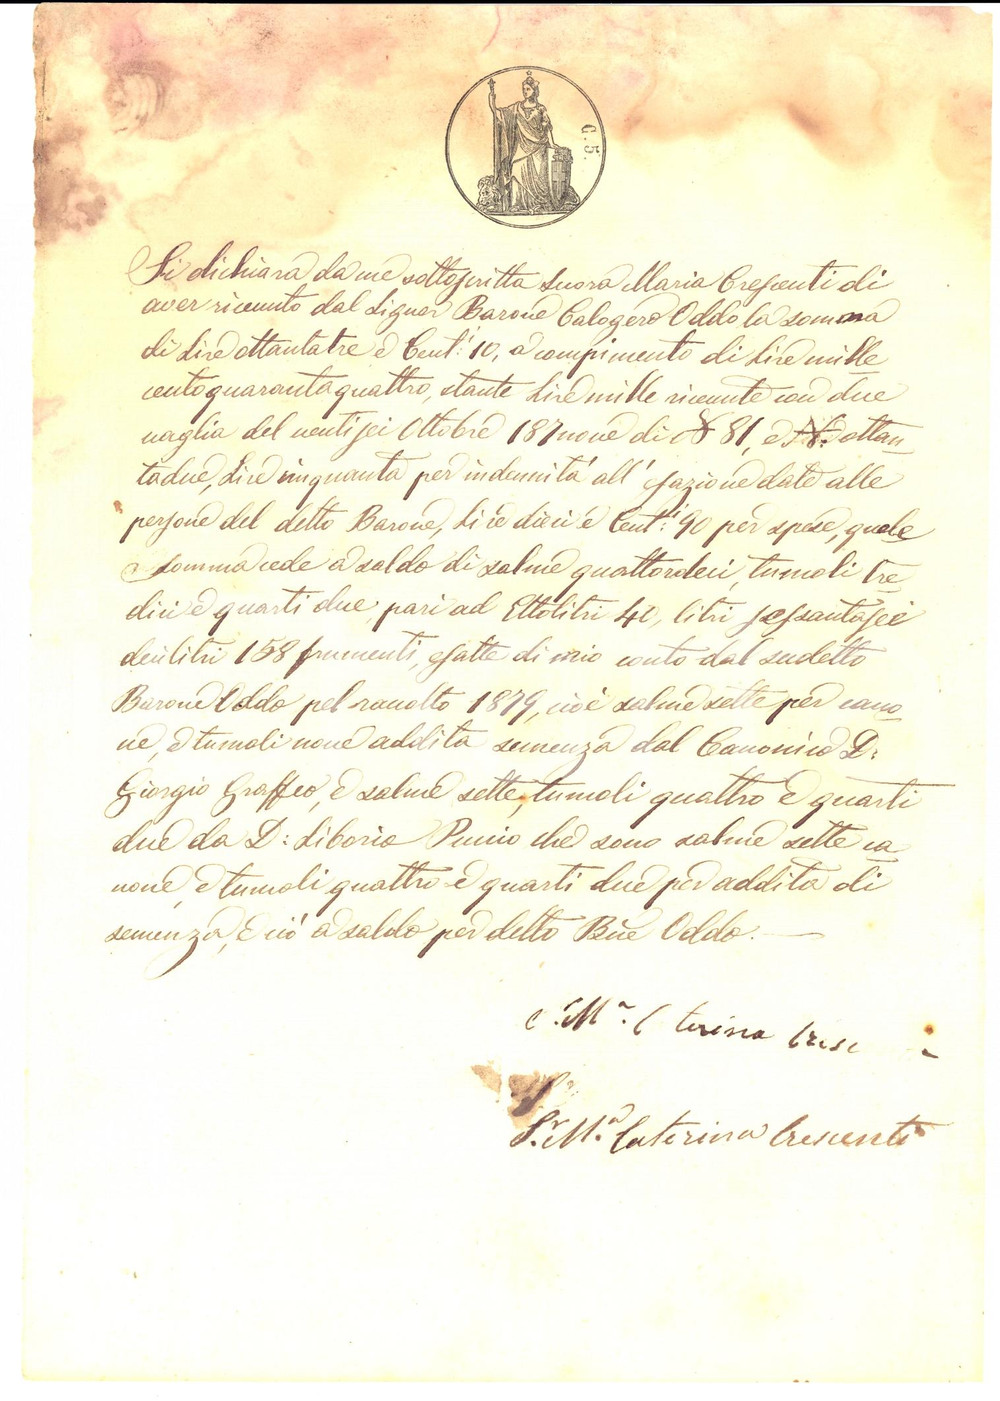 C. 5.
Si dichiara da me sottoscritta Suora Maria Crescenti di
aver ricevuto dal Signor Barone Calogero Oddo la somma
di Lire ottantatre e Cent.i 10, a compimento di Lire mille
centoquarantaquattro, stante Lire mille ricevute con due
vaglia del ventisei Ottobre 187nove di N 81, e N. ottan
tadue, Lire cinquanta per indennità all'esazione date alle
persone del detto Barone, Lire dieci e Cent.i 90 per spese, quale
somma cede a saldo di salme quattordeci, tumoli tre
dici e quarti due, pari ad Ettolitri 40, litri sessantasei
decilitri 158 frumenti, esatte di mio conto dal sudetto
Barone Oddo pel racolto 1879, cioè salme sette per cano
ne, e tumoli nove addita semenza dal Canonico D:
Giorgio Graffeo, e salme sette, tumoli quattro e quarti
due da D: Liborio che sono salme sette ca
none, e tumoli quattro e quarti due per addita di
semenza, e ciò a saldo per detto Bne Oddo.
S.r M.a C terina Cresc
S.r
S.r M.a Caterina Crescenti